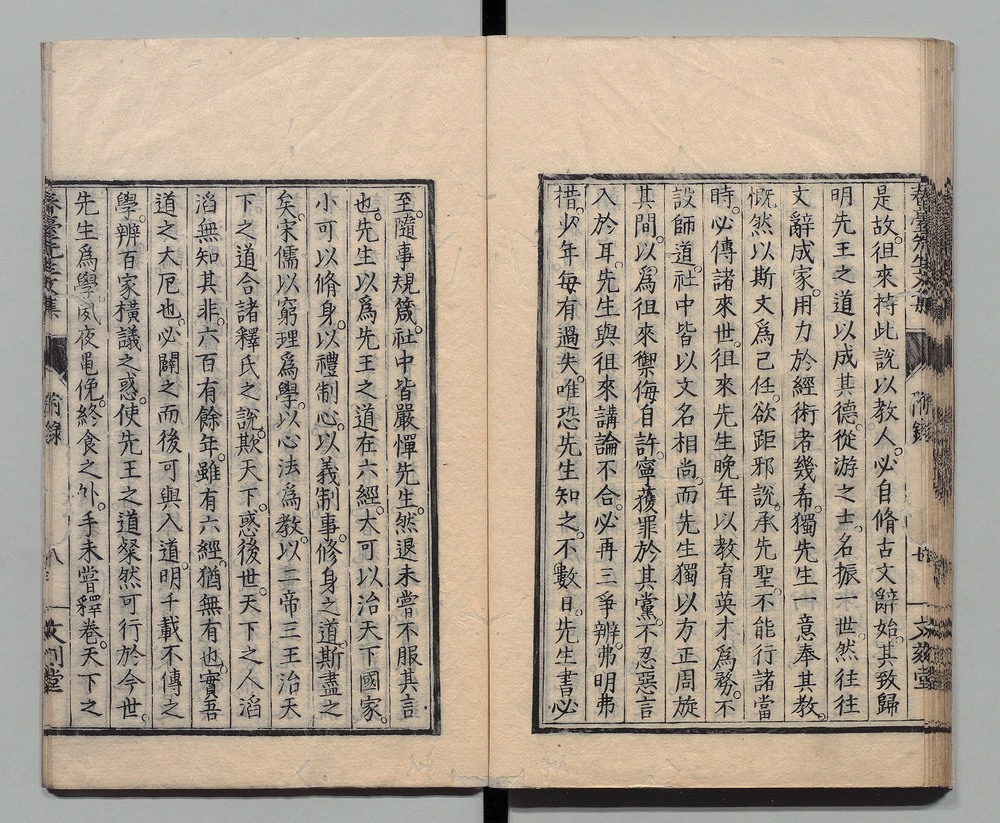 是故。徂來持此說以教人。必自脩古文辭始。其致歸
明先王之道以成其德。從游之士。名振一世。然往往
文辭成家。用力於經術者幾希。獨先生一意奉其教。
慨然以斯文爲己任。欲距邪說。承先聖。不能行諸當
時。必傳諸來世。徂來先生晚年以教育英才爲務。不
設師道。社中皆以文名相尚。而先生獨以方正周旋
其間。以爲徂來禦侮自許。寧獲罪於其黨。不忍惡言
入於耳。先生與徂來講論不合。必再三爭辨。弗明弗
措。少年每有過失。唯恐先生知之。不數日。先生書必
至。隨事規箴。社中皆嚴憚先生。然退未嘗不服其言
也。先生以爲先王之道在六經。大可以治天下國家。
小可以脩身。以禮制心。以義制事。修身之道。斯盡之
矣。宋儒以窮理爲學。以心法爲教。以二帝三王治天
下之道合諸釋氏之說。欺天下惑後世。天下之人滔
滔無知其非。六百有餘年。雖有六經。猶無有也。實吾
道之大厄也。必闢之而後可與入道。明千載不傳之
學。辨百家橫議之惑。使先王之道粲然可行於今世。
先生爲學。夙夜黽俛。終食之外。手未嘗釋卷。天下之
春臺先生文集
附錄
八